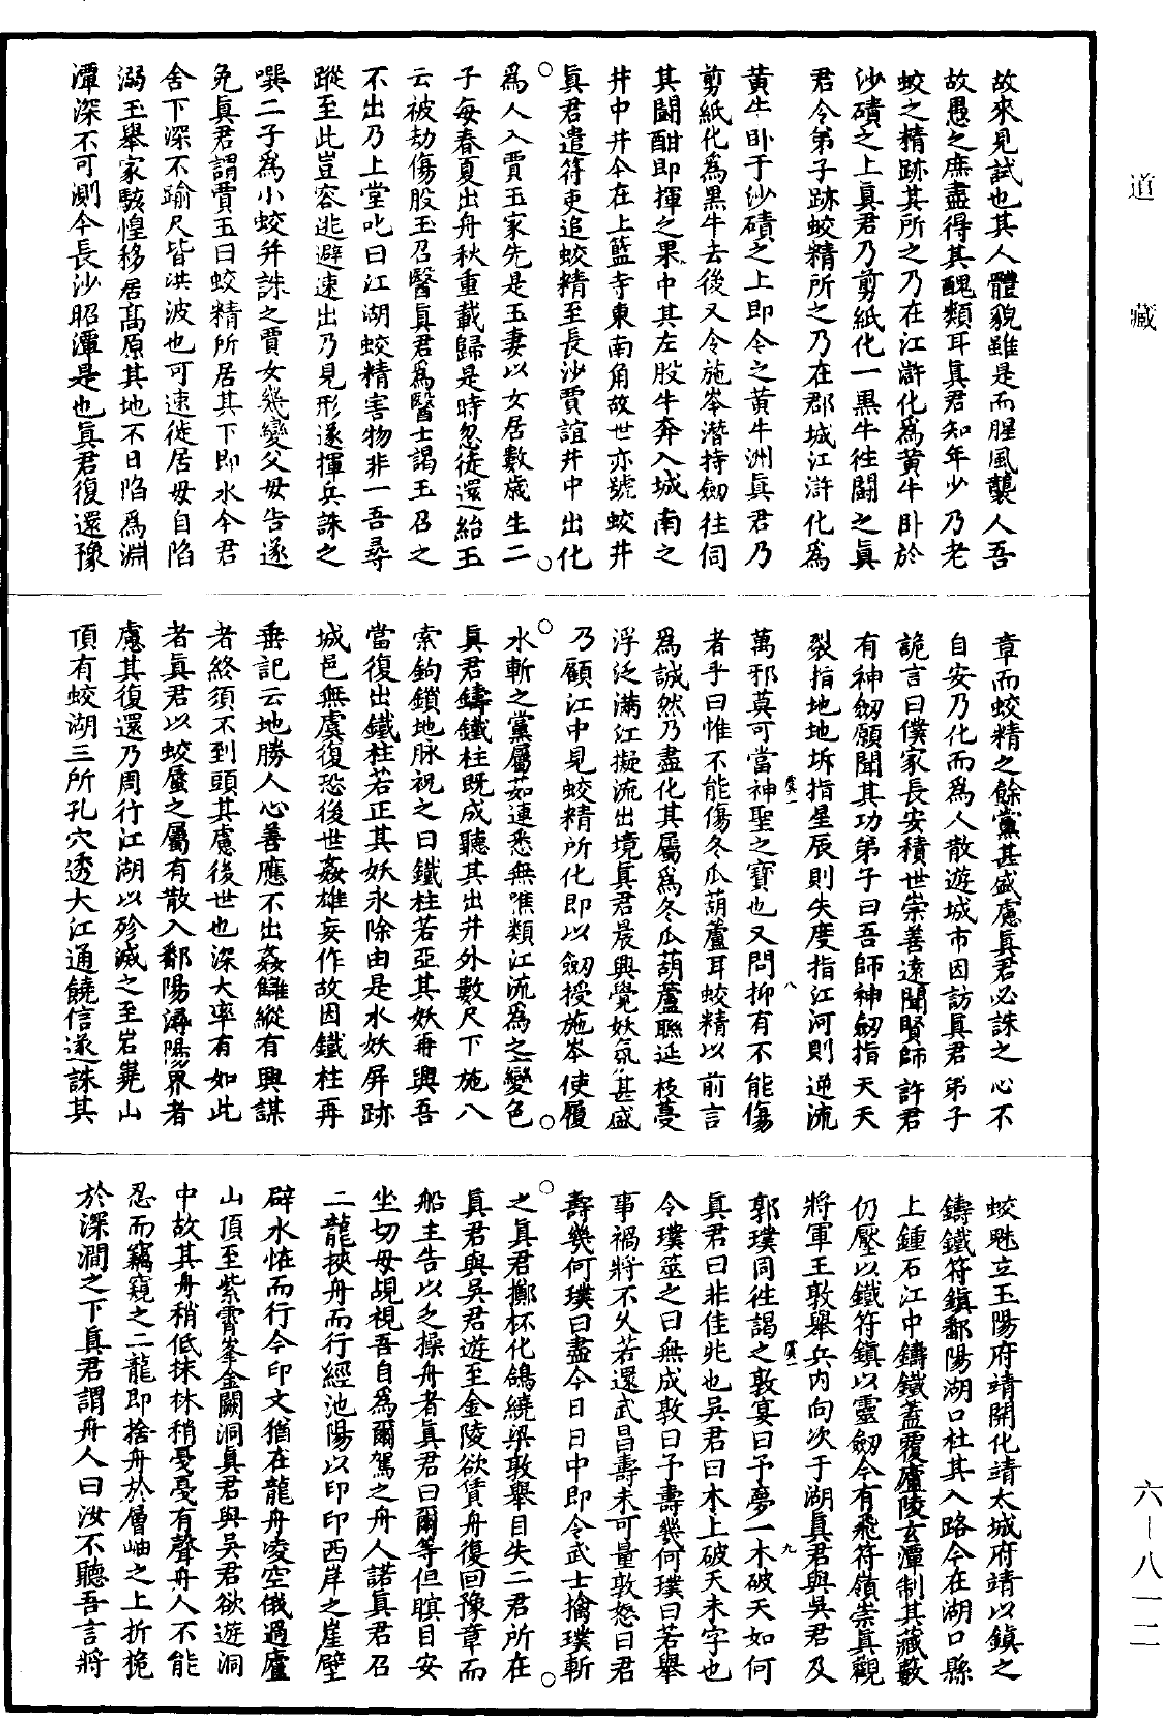 道藏
故來見試也其人體貌雖是而腥風襲人吾
故愚之庶盡得其醜類耳真君知年少乃老
蛟之精跡其所之乃在江滸化為黃牛臥於
沙磧之上真君乃剪紙化一黑牛往鬪之真
君令弟子跡蛟精所之乃在郡城江滸化為
黃牛臥于沙磧之上即今之黃牛洲真君乃
剪紙化為黑牛去後又令施岑潛持劒往伺
其鬪酣即揮之果中其左股牛奔入城南之
井中井今在上藍寺東南角故世亦號蛟井
真君遣符吏追蛟精至長沙賈誼井中出化
為人入賈玉家先是玉妻以女居數歲生二
子每春夏出舟秋重載歸是時忽徒還紿玉
云被劫傷股玉召醫真君為醫士謁玉召之
不出乃上堂叱曰江湖蛟精害物非一吾尋
蹤至此豈容逃避速出乃見形遂揮兵誅之
噀二子為小蛟并誅之賈女幾變父母告遂
免真君謂賈玉曰蛟精所居其下即水今君
舍下深不踰尺皆洪波也可速徙居毋自陷
溺玉舉家駭惶移居高原其地不日陷為淵
潭深不可測今長沙昭潭是也真君復還豫
章而蛟精之餘黨甚盛慮真君必誅之心不
自安乃化而為人散遊城市因訪真君弟子
詭言曰僕家長安積世崇善遠聞賢師許君
有神劒願聞其功弟子曰吾師神劒指天天
裂指地地坼指星辰則失度指江河則逆流
虞一
八
萬邪莫可當神聖之寶也又問抑有不能傷
者乎曰惟不能傷冬瓜葫蘆耳蛟精以前言
為誠然乃盡化其屬為冬瓜葫蘆聯延枝蔓
浮泛滿江擬流出境真君晨興覺妖氛甚盛
乃顧江中見蛟精所化即以劒授施岑使履
水斬之黨屬茹連悉無噍類江流為之變色
真君鑄鐵柱既成聽其出井外數尺下施八
索鉤鎖地脉祝之曰鐵柱若亞其妖再興吾
當復出鐵柱若正其妖永除由是水妖屏跡
城邑無虞復恐後世姦雄妄作故因鐵柱再
垂記云地勝人心善應不出姦讎縱有興謀
者終須不到頭其慮後世也深大率有如此
者真君以蛟蜃之屬有散入鄱陽潯陽界者
慮其復還乃周行江湖以殄滅之至岩嶤山
頂有蛟湖三所孔穴透大江通饒信遂誅其
蛟魅立玉陽府靖開化靖太城府靖以鎮之
鑄鐵符鎮鄱陽湖口杜其入路今在湖口縣
上鍾石江中鑄鐵蓋覆廬陵玄潭制其藏藪
仍壓以鐵符鎮以靈劒今有飛符嶺崇真觀
將軍王敦舉兵內向次于湖真君與吳君及
虞一
九
郭璞同往謁之敦宴曰予夢一木破天如何
真君曰非佳兆也吳君曰木上破天未字也
令璞筮之曰無成敦曰予壽幾何璞曰若舉
事禍將不久若還武昌壽未可量敦怒曰君
壽幾何璞曰盡今日日中即令武士擒璞斬
之真君擲杯化鴿繞梁敦舉目失二君所在
真君與吳君遊至金陵欲賃舟復回豫章而
船主告以乏操舟者真君曰爾等但瞑目安
坐切毋覘視吾自為爾駕之舟人諾真君召
二龍挾舟而行經池陽以印印西岸之崖壁
辟水恠而行今印文猶在龍舟凌空俄過廬
山頂至紫霄峯金闕洞真君與吳君欲遊洞
中故其舟稍低抹林梢戞戞有聲舟人不能
忍而竊窺之二龍即捨舟於層岫之上折桅
於深澗之下真君謂舟人曰汝不聽吾言將
六－八一二